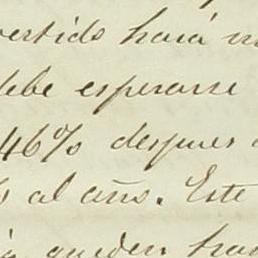 vertido hará
debe esperarse
46% despues
al año. Este
queden